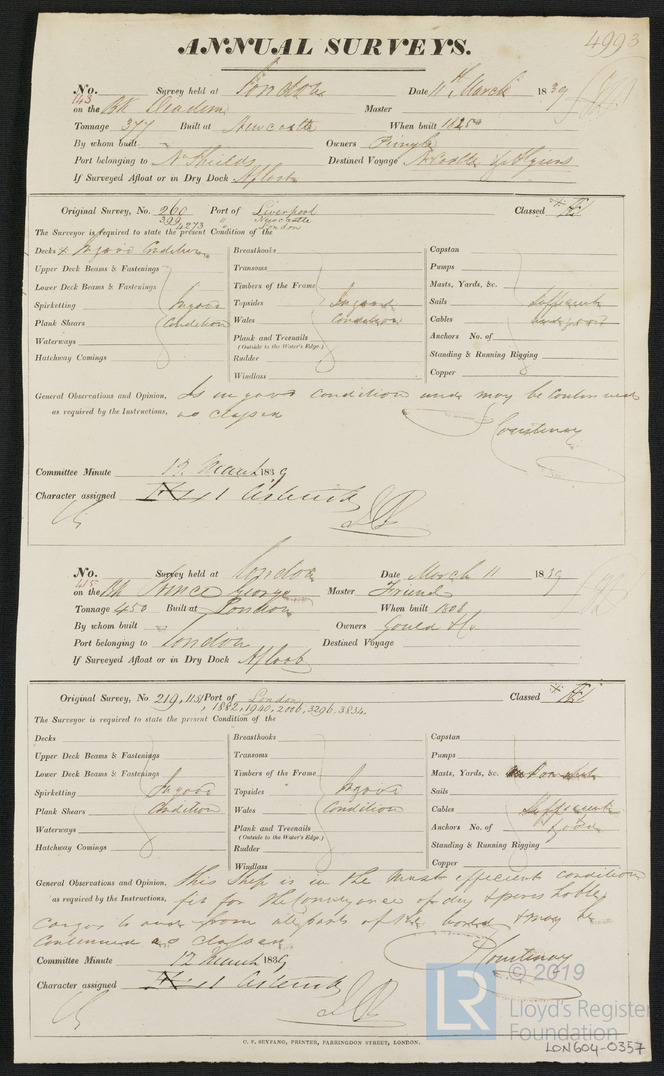 4993
ANNUAL SURVEYS.
No. 143 Survey held at London Date 11th March 1839
on the Bk Diadem Master
Tonnage 377 Built at Newcastle When built 1825
By whom built Owners Pringle
Port belonging to N Shields Destined Voyage
If Surveyed Afloat or in Dry Dock Afloat
Original Survey, No. 260 Port of Liverpool Classed
399 " Newcastle
4273 " London
The Surveyor is required to state the present Condition of the
Decks & In good Condition Breasthooks Capstan
Upper Deck Beams & Fastenings Transoms Pumps
Lower Deck Beams & Fastenings Timbers of the Frame Masts, Yards, &c.
Spirketting In good Topsides In good Sails Sufficient
Plank Shears Condition Wales Condition Cables and good
Waterways Plank and Treenails Anchors No. of
(Outside to the Water's Edge.)
Hatchway Comings Rudder Standing & Running Rigging
Windlass Copper
General Observations and Opinion, Is in good condition and may be continued
as required by the Instructions, as classed
Courtenay
Committee Minute 12 March 1839
Character assigned
No. 415 Survey held at London Date March 11 1839
on the Bk Prince George Master Friend
Tonnage 450 Built at London When built 1808
By whom built Owners Gould & Co.
Port belonging to London Destined Voyage
If Surveyed Afloat or in Dry Dock Afloat
Original Survey, No. 219, 1151 Port of London Classed
, 1882, 1940, 2006, 3296, 3834.
The Surveyor is required to state the present Condition of the
Decks Breasthooks Capstan
Upper Deck Beams & Fastenings Transoms Pumps
Lower Deck Beams & Fastenings Timbers of the Frame Masts, Yards, &c.
Spirketting In good Topsides In good Sails
Plank Shears Condition Wales Condition Cables Sufficient
Waterways Plank and Treenails Anchors No. of & good
(Outside to the Water's Edge.)
Hatchway Comings Rudder Standing & Running Rigging
Windlass Copper
General Observations and Opinion, This Ship is in the most efficient condition
as required by the Instructions, fit for the conveyance of dry & perishable
cargos to and from all parts of the world & may be
continued as classed
Courtenay
Committee Minute 12 March 1839
Character assigned
C. F. SEYFANG, PRINTER, FARRINGDON STREET, LONDON.
LR © 2019
Lloyd's Register
Foundation
LON604-0357